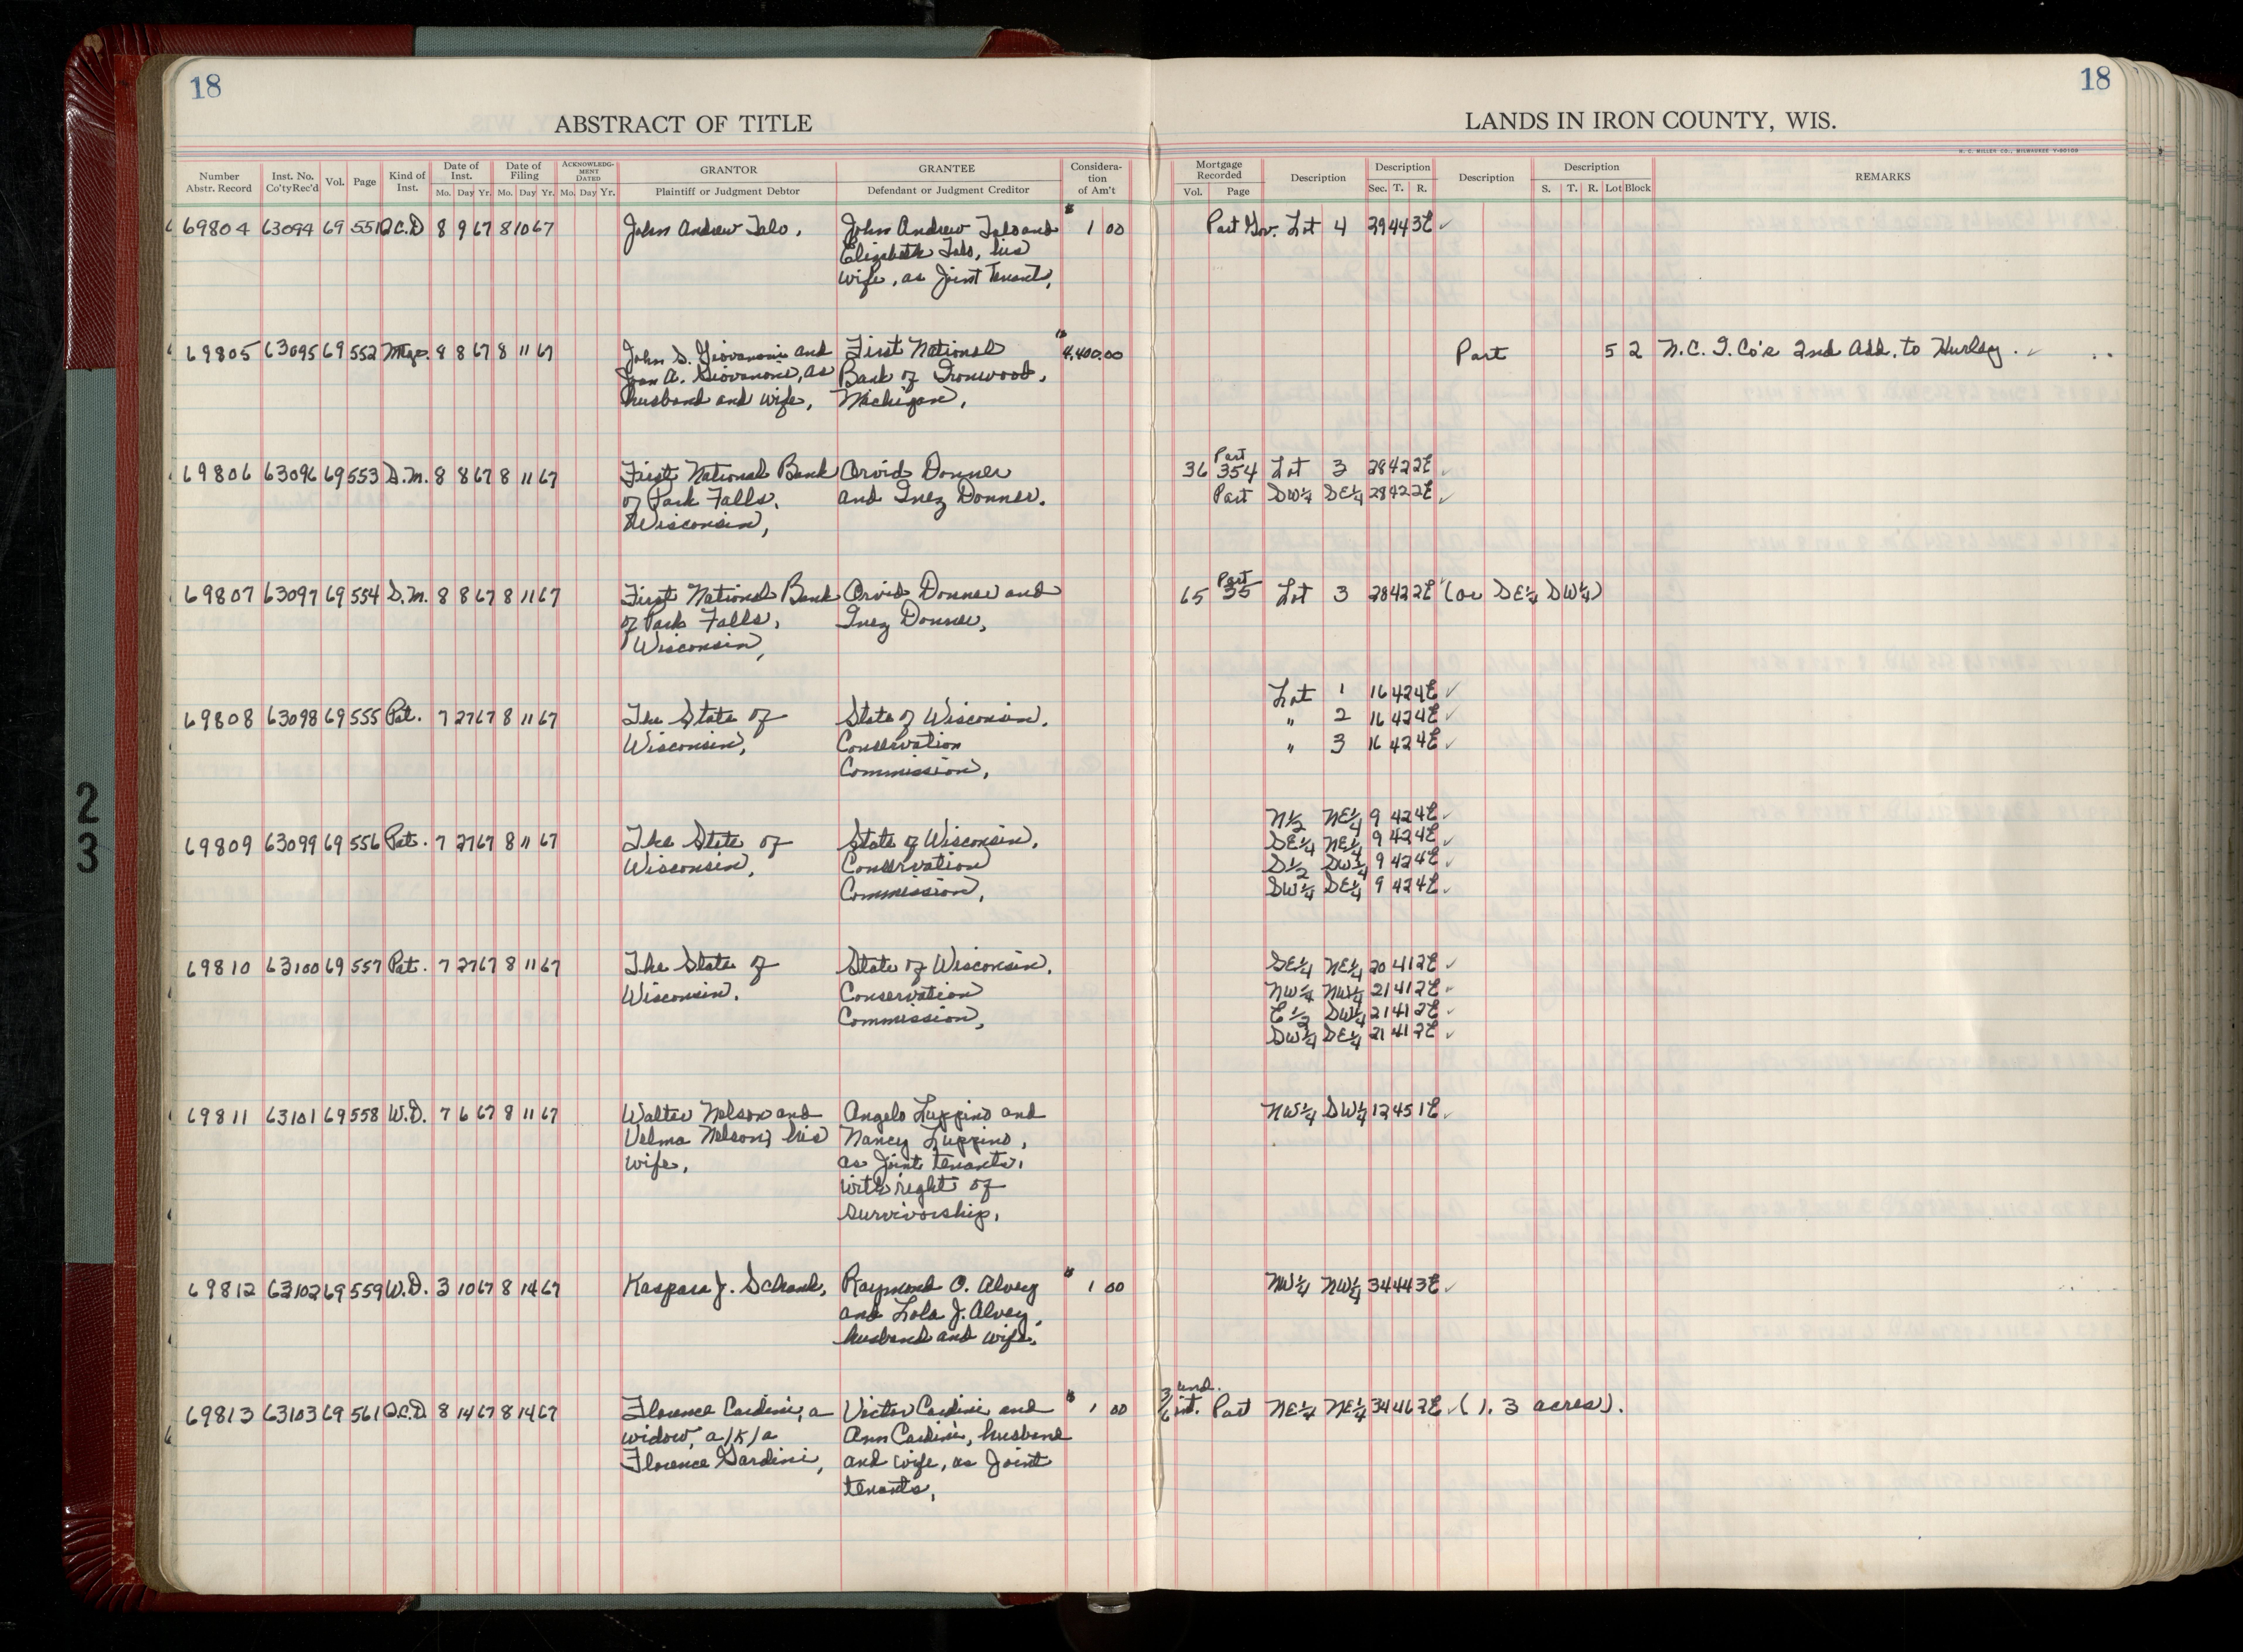 18
18
ABSTRACT OF TITLE
LANDS IN IRON COUNTY, WIS.
H. C. MILLER CO., MILWAUKEE
Number Abstr. Record
Inst. No. Co'ty Rec'd
Vol.
Page
Kind of Inst.
Date of Inst.
Mo. Day Yr.
Date of Filing
Mo. Day Yr.
ACKNOWLEDGMENT DATED
Mo. Day Yr.
GRANTOR
Plaintiff or Judgment Debtor
GRANTEE
Defendant or Judgment Creditor
Consideration of Am't
Mortgage Recorded
Vol. Page
Description
Description
Sec. T. R.
Description
Description
S. T. R. Lot Block
REMARKS
69804 63094 69 551 Q.C.D 8 9 67 8 10 67 John Andrew Talo, John Andrew Talo and $ 1 00 Part Gov. Lot 4 29 44 3E ✓
Elizabeth Talo, his
wife, as Joint Tenants,
69805 63095 69 552 Mtge. 8 8 67 8 11 67 John S. Giovanoni and First National $ 4,400.00 Part 5 2 N.C.I.Co's 2nd Add. to Hurley. ✓
Joan A. Giovanoni, as Bank of Ironwood,
husband and wife, Michigan,
69806 63096 69 553 S.M. 8 8 67 8 11 67 First National Bank Arvid Donner 36 Part 354 Lot 3 28 42 2E ✓
of Park Falls, and Inez Donner. Part SW¼ SE¼ 28 42 2E ✓
Wisconsin,
69807 63097 69 554 S.M. 8 8 67 8 11 67 First National Bank Arvid Donner and 65 Part 35 Lot 3 28 42 2E ✓ (or SE¼ SW¼)
of Park Falls, Inez Donner,
Wisconsin,
Lot 1 16 42 4E ✓
69808 63098 69 555 Pat. 7 27 67 8 11 67 The State of State of Wisconsin, " 2 16 42 4E ✓
Wisconsin, Conservation " 3 16 42 4E ✓
Commission,
N½ NE¼ 9 42 4E ✓
69809 63099 69 556 Pat. 7 27 67 8 11 67 The State of State of Wisconsin, SE¼ NE¼ 9 42 4E ✓
Wisconsin, Conservation S½ SW¼ 9 42 4E ✓
Commission, SW¼ SE¼ 9 42 4E ✓
69810 63100 69 557 Pat. 7 27 67 8 11 67 The State of State of Wisconsin, SE¼ NE¼ 20 41 2E ✓
Wisconsin. Conservation NW¼ NW¼ 21 41 2E ✓
Commission, E½ SW¼ 21 41 2E ✓
SW¼ SE¼ 21 41 2E ✓
69811 63101 69 558 W.D. 7 6 67 8 11 67 Walter Nelson and Angelo Luppino and NW¼ SW¼ 12 45 1E ✓
Velma Nelson, his Nancy Luppino,
wife, as Joint tenants,
with right of
survivorship,
69812 63102 69 559 W.D. 3 10 67 8 14 67 Kaspara J. Schank, Raymond O. Alvey $ 1 00 NW¼ NW¼ 34 44 3E ✓
and Lola J. Alvey,
husband and wife.
69813 63103 69 561 Q.C.D. 8 14 67 8 14 67 Florence Cardini, a Victor Cardini and $ 1 00 3/6 und. int. Part NE¼ NE¼ 34 46 2E ✓ (1.3 acres).
widow, a/k/a Ann Cardini, husband
Florence Gardini, and wife, as Joint
tenants,
2
3